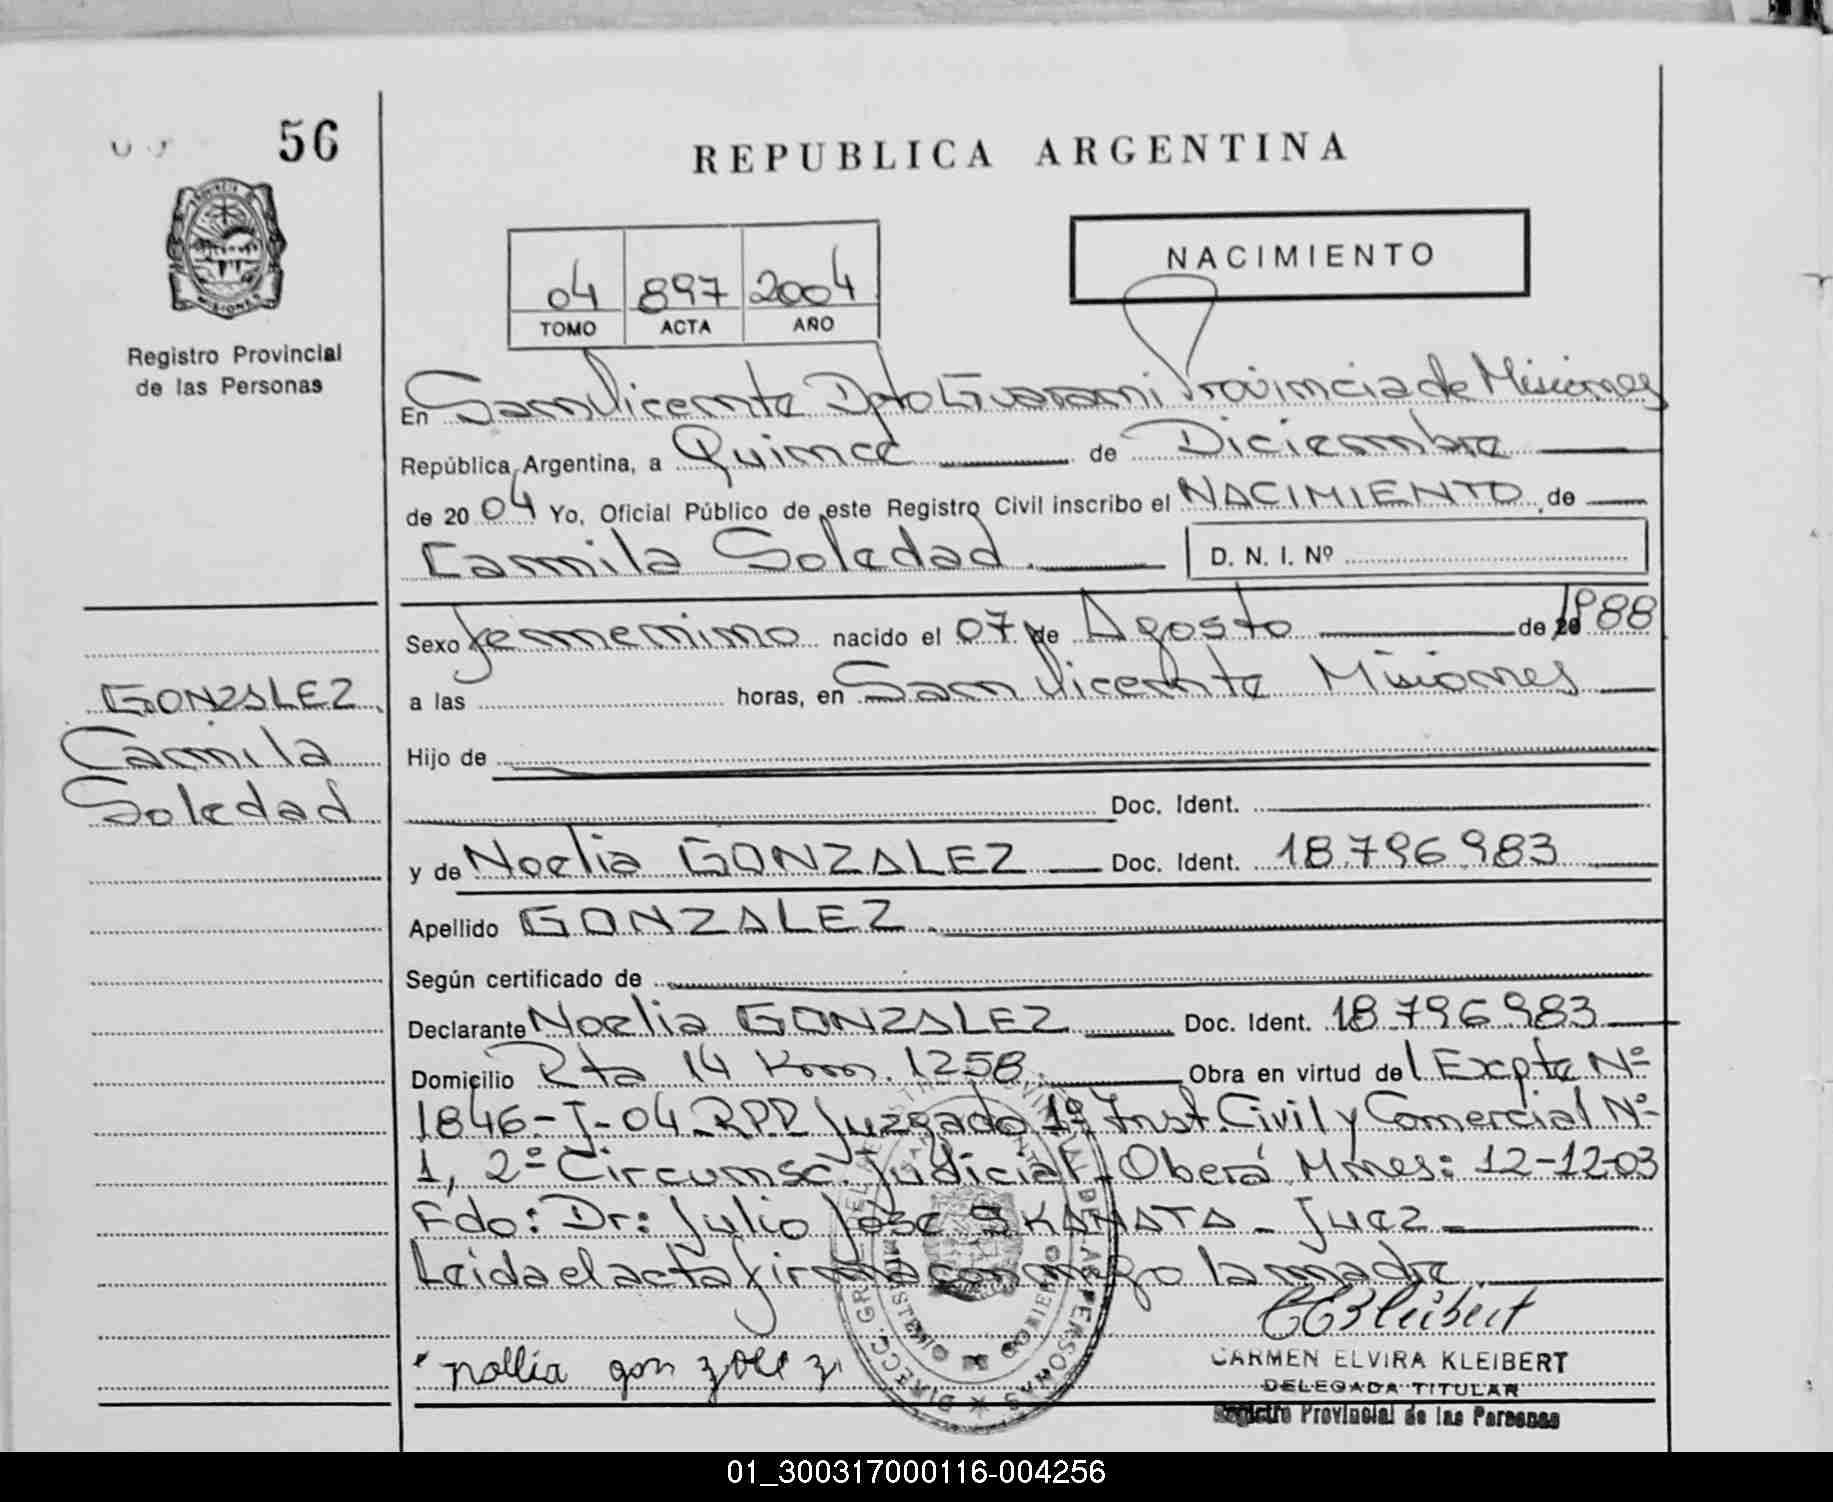 56
REPUBLICA ARGENTINA
NACIMIENTO
04 897 2004
TOMO ACTA AÑO
PROVINCIA
MISIONES
Registro Provincial
de las Personas
En San Vicente Dpto Guarani Provincia de Misiones
República Argentina, a Quince de Diciembre
de 2004 Yo, Oficial Público de este Registro Civil inscribo el NACIMIENTO de
Camila Soledad. D. N. I. Nº
Sexo femenino nacido el 07 de Agosto de 1988
a las horas, en San Vicente Misiones
GONZALEZ
Camila
Soledad
Hijo de
Doc. Ident.
y de Noelia GONZALEZ Doc. Ident. 18.796.983
Apellido GONZALEZ
Según certificado de
Declarante Noelia GONZALEZ Doc. Ident. 18.796.983
Domicilio Rta 14 Km. 1258. Obra en virtud del Expte Nº
1846-J-04 RPP Juzgado 1º Inst. Civil y Comercial Nº
1, 2º Circunsc. Judicial - Oberá Mnes: 12-12-03
Fdo: Dr: Julio Jose SKANATA - Juez
Leida el acta firma conmigo la madre.
CARMEN ELVIRA KLEIBERT
DELEGADA TITULAR
Registro Provincial de las Personas
01_300317000116-004256